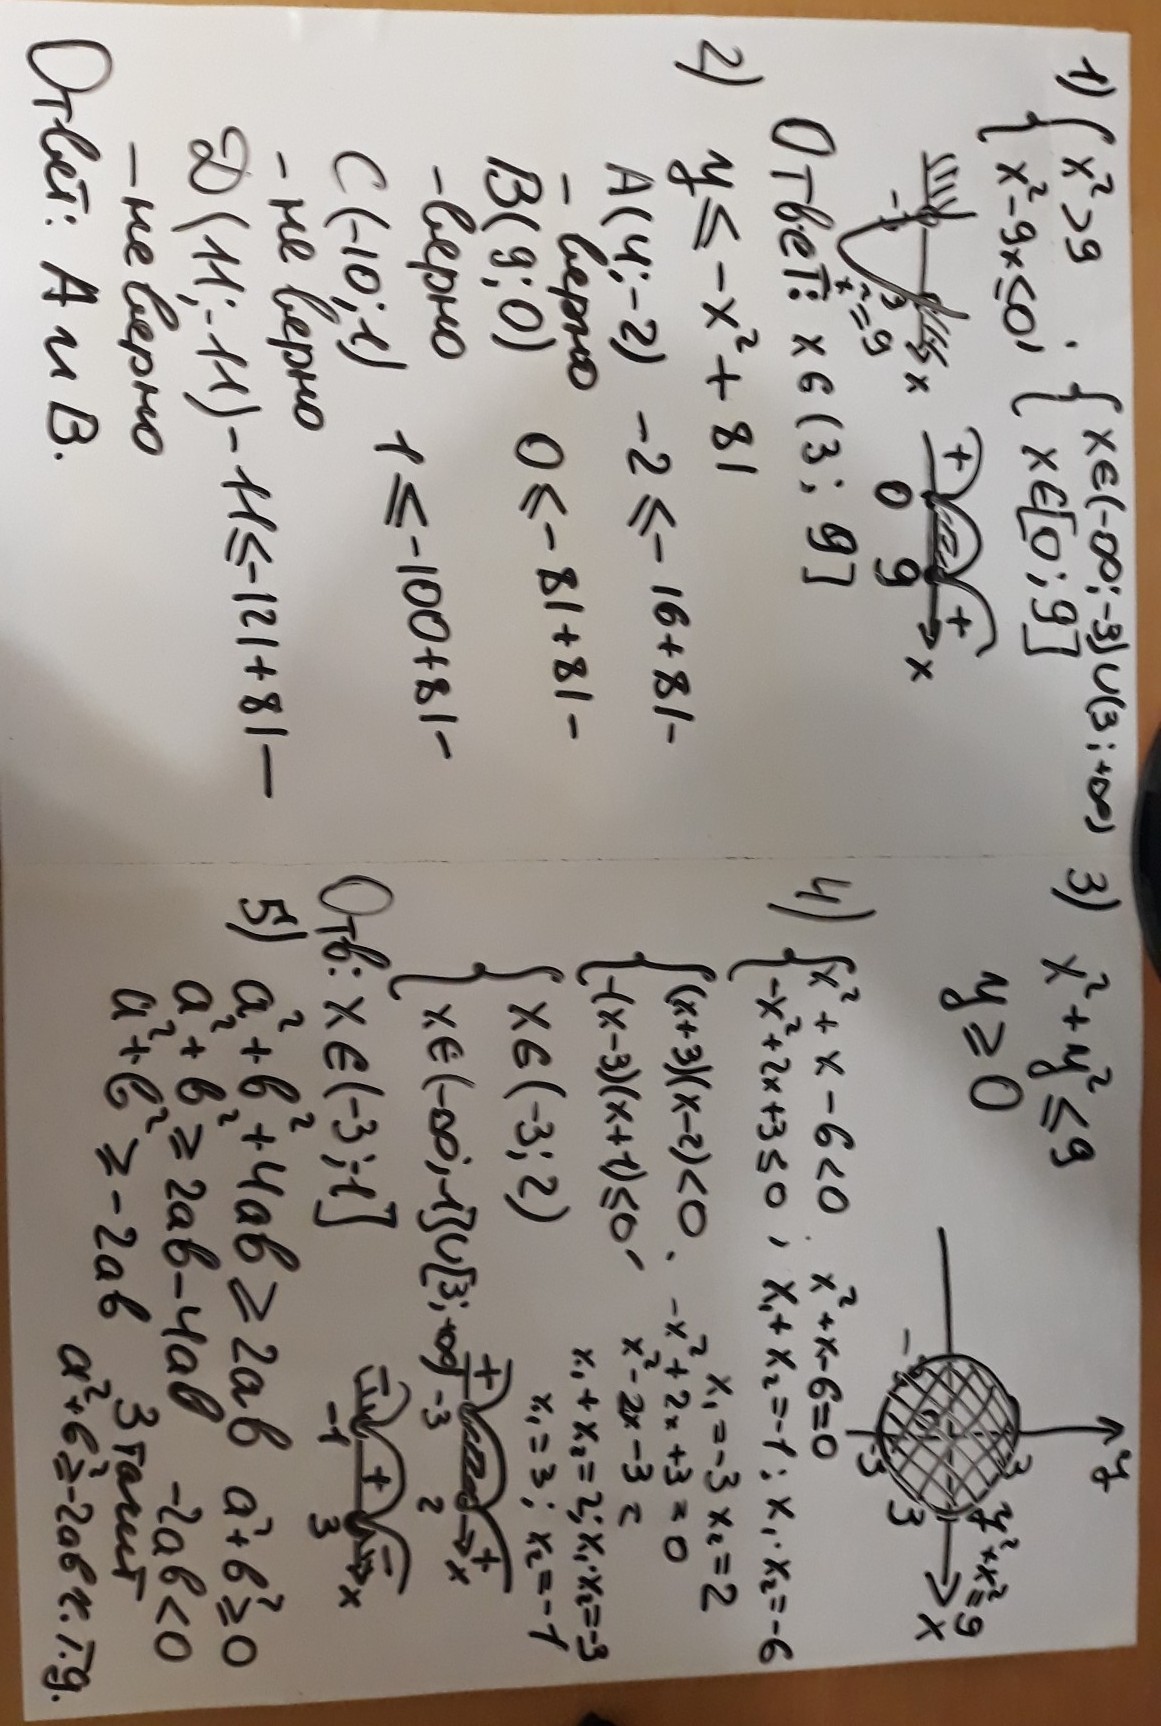 1) { x² > 9
x² - 9x ≤ 0,
; { x ∈ (-∞; -3) ∪ (3; +∞)
x ∈ [0; 9]
-3 3 x
x² = 9
+ 0 9 + x
Ответ: x ∈ (3; 9]
2) y ≤ -x² + 81
A(4; -2) -2 ≤ -16 + 81 -
- верно
B(9; 0) 0 ≤ -81 + 81 -
- верно
C(-10; 1) 1 ≤ -100 + 81 -
- не верно
D(11; -11) -11 ≤ -121 + 81 —
- не верно
Ответ: A и B.
3) x² + y² ≤ 9
y ≥ 0
y
3
-3
-3
3
y² + x² = 9
x
4) { x² + x - 6 < 0 ; x² + x - 6 = 0
-x² + 2x + 3 ≤ 0 , x₁ + x₂ = -1 ; x₁ · x₂ = -6
x₁ = -3 x₂ = 2
{ (x+3)(x-2) < 0 ; -x² + 2x + 3 = 0
-(x-3)(x+1) ≤ 0, x² - 2x - 3 =
x₁ + x₂ = 2; x₁ · x₂ = -3
x₁ = 3; x₂ = -1
{ x ∈ (-3; 2)
x ∈ (-∞; -1] ∪ [3; +∞)
+ -3 - 2 + x
- -1 + 3 - x
Отв: x ∈ (-3; -1]
5) a² + b² + 4ab ≥ 2ab a² + b² ≥ 0
a² + b² ≥ 2ab - 4ab -2ab < 0
a² + b² ≥ -2ab Значит
a² + b² ≥ -2ab ч.т.д.